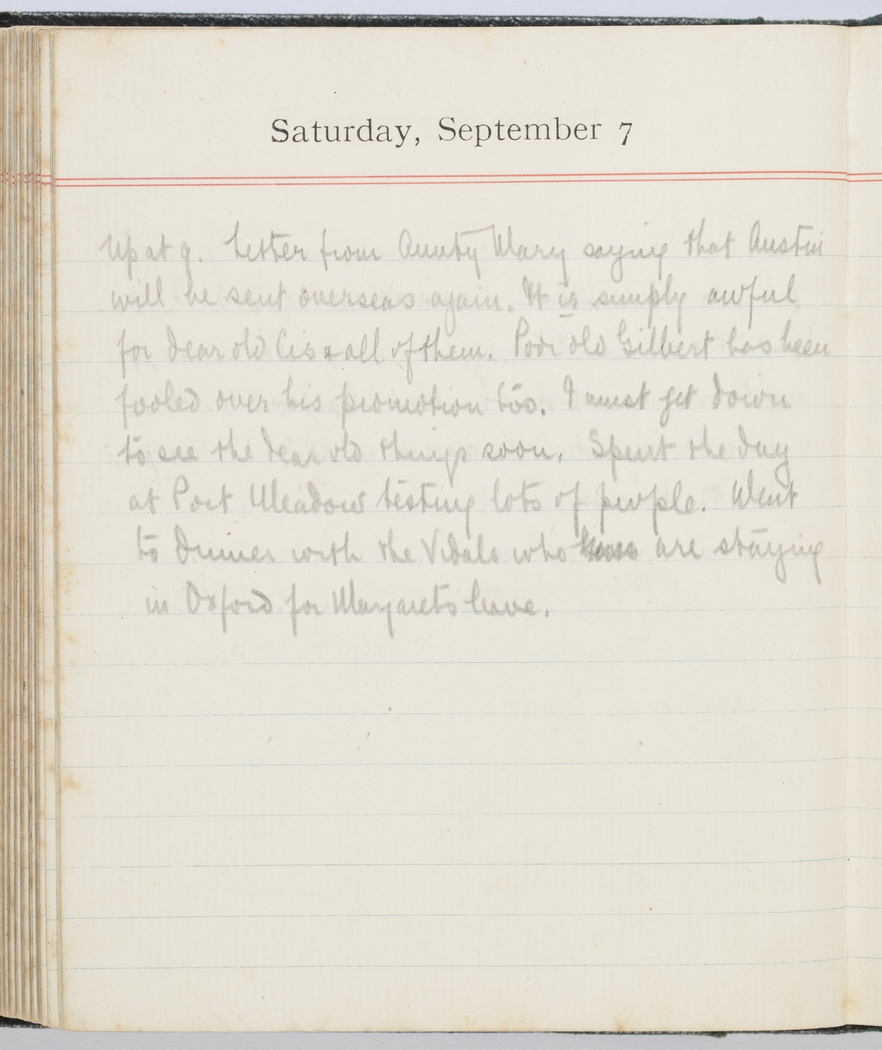 Saturday, September 7
Up at 9. Letter from Aunty Mary saying that Austin
will be sent overseas again. It is simply awful
for dear old Cis & all of them. Poor old Gilbert has been
fooled over his promotion too. I must get down
to see the dear old things soon. Spent the day
at Port Meadow testing lots of people. Went
to dinner with the Vidals who are staying
in Oxford for Margarets leave.